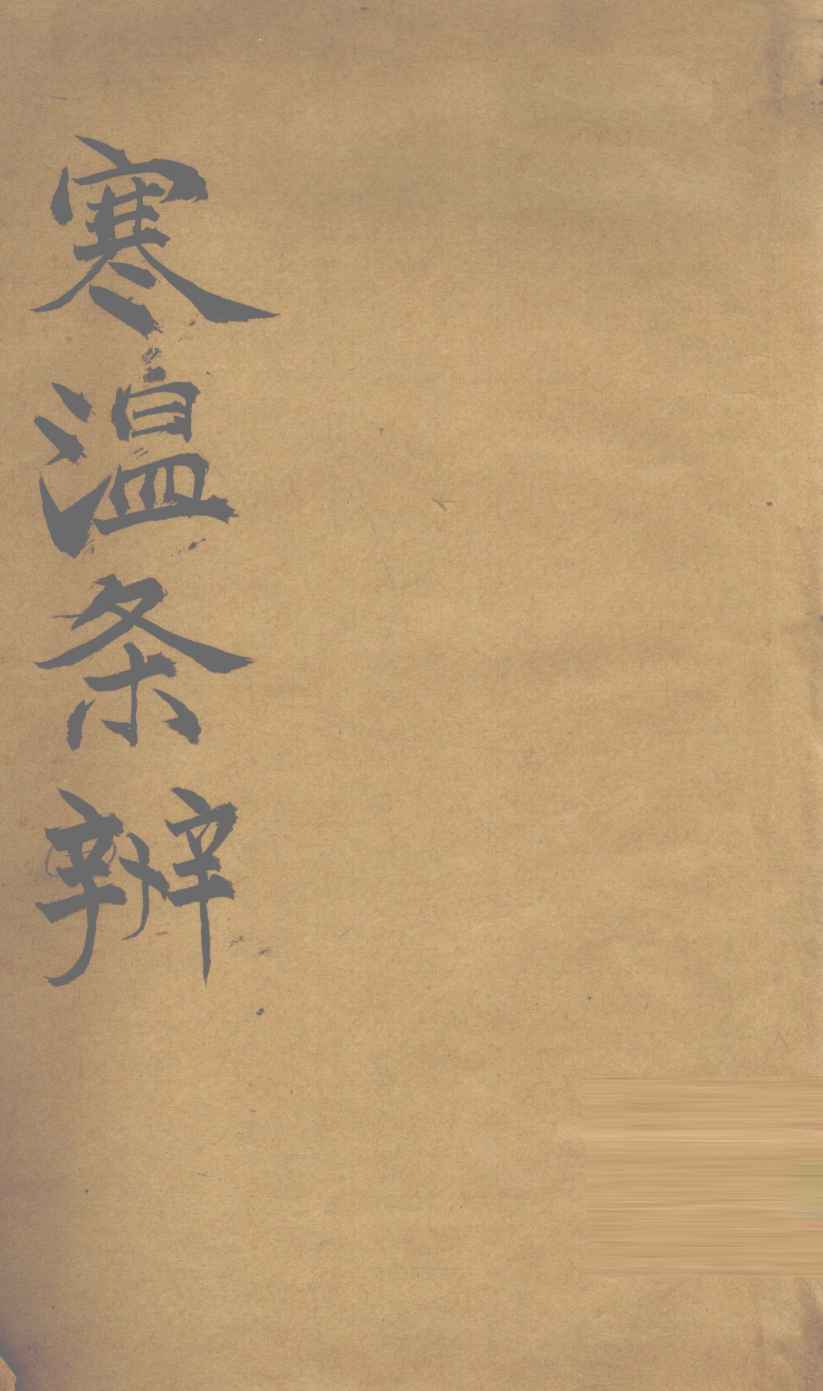 寒温条辨